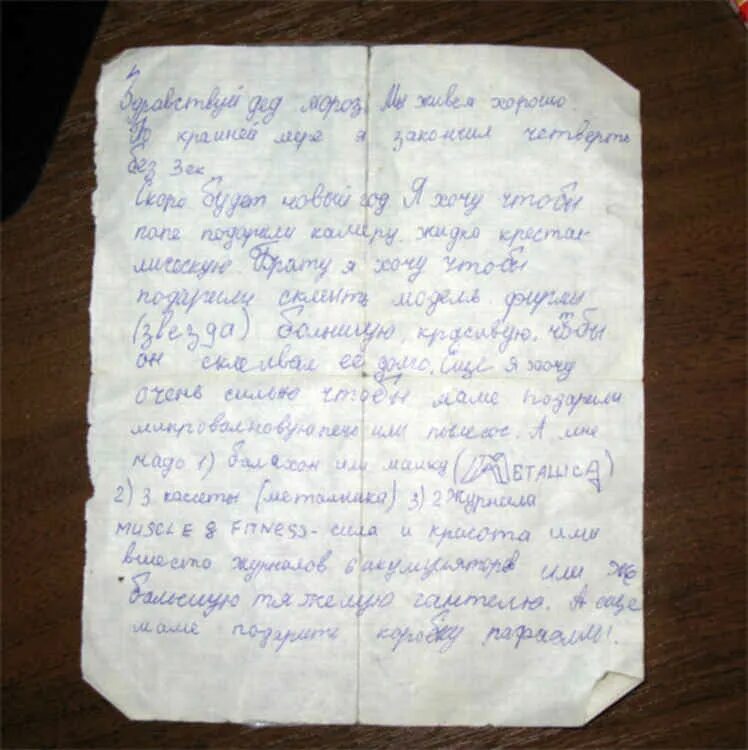 Здравствуй дед мороз. Мы живем хорошо.
По крайней мере я закончил четверть
без 3ек
Скоро будет новый год Я хочу чтобы
папе подарили камеру жидко креста-
лическую. Брату я хочу чтобы
подарили склеить модель фирмы
(звезда) большую, красивую, чтобы
он склеевал её долго. Еще я хочу
очень сильно чтобы маме подарили
микроволновую печь или пылесос. А мне
надо 1) балахон или майку (METALLICA)
2) 3 кассеты (металника) 3) 2 журнала
MUSCLE & FITNESS - сила и красота или
вместо журналов 6 акумуляторов или же
большую тяжелую гантелю. А еще
маме подарите коробку рафаэллы!